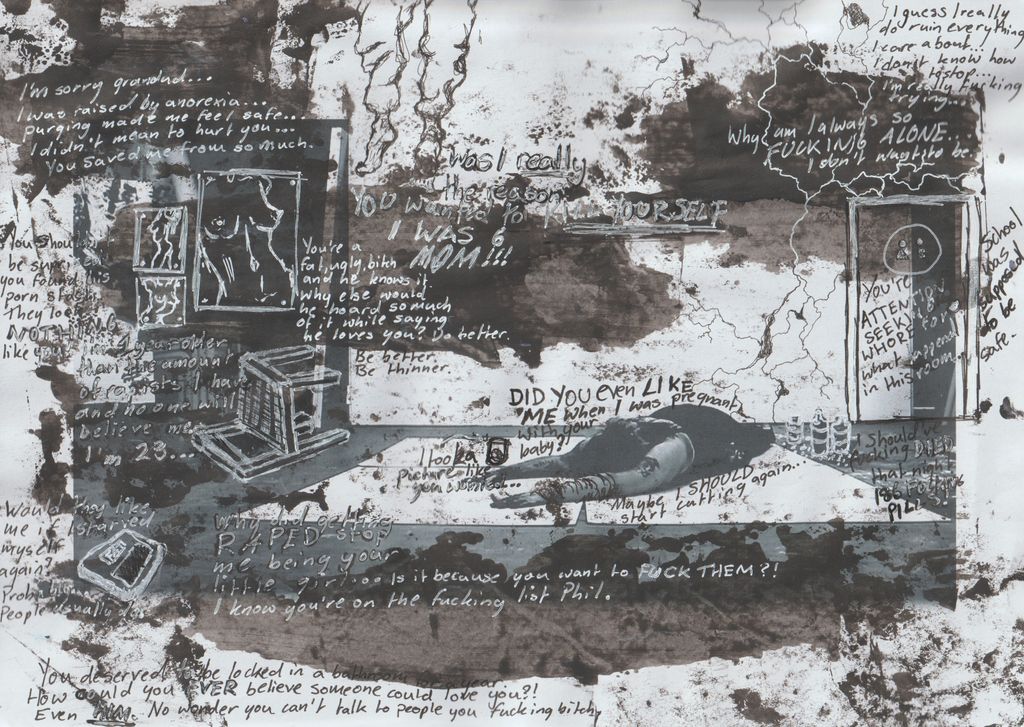 I'm sorry grandad...
I was raised by anorexia...
purging made me feel safe...
I didn't mean to hurt you...
You saved me from so much.
I guess I really
do ruin everything
I care about...
I don't know how
to stop...
I'm really fucking
trying...
Why am I always so
FUCKING ALONE...
I don't want to be
Was I really
the reason
YOU wanted to KILL YOURSELF
I WAS 6
MOM!!!
You should
be sure
you found this
porn stash.
They look
NOTHING
like you
You're a
fat, ugly, bitch
and he knows it
why else would
he hoard so much
of it while saying
he loves you? Do better.
Be better.
Be thinner.
than the amount
of rapists I have
and no one will
believe me
I'm 23...
YOU'RE
ATTENTION
SEEKING
WHORE
what happened
in this room
School
was
supposed
to be
safe.
DID YOU even LIKE
ME when I was pregnant
with your
baby?
I look a
picture like
you wanted...
Maybe I SHOULD
start cutting again...
I should've
fucking DIED
that night
PILLS!
Would they like
me if I
starved
myself
again?
People usually do.
Why did getting
RAPED STOP
me being your
little girl... Is it because you want to FUCK THEM?!
I know you're on the fucking list Phil.
You deserved to be locked in a bathroom
How could you EVER believe someone could love you?!
Even HIM. No wonder you can't talk to people you fucking bitch,